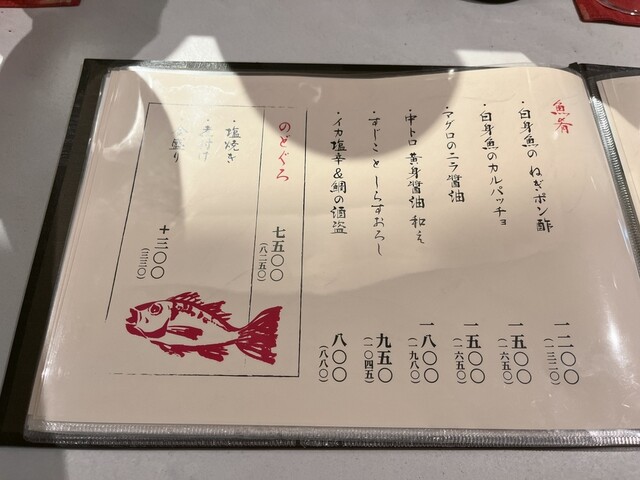 魚肴
・白身魚の ねぎポン酢 一二〇〇
(一三二〇)
・白身魚のカルパッチョ 一五〇〇
(一六五〇)
・マグロのニラ醤油 一五〇〇
(一六五〇)
・中トロ 黄身醤油 和え 一八〇〇
(一九八〇)
・すじこ と しらすおろし 九五〇
(一〇四五)
・イカ塩辛&鯛の酒盗 八〇〇
(八八〇)
のどぐろ 七五〇〇
(八二五〇)
・塩焼き
+三〇〇
(三三〇)